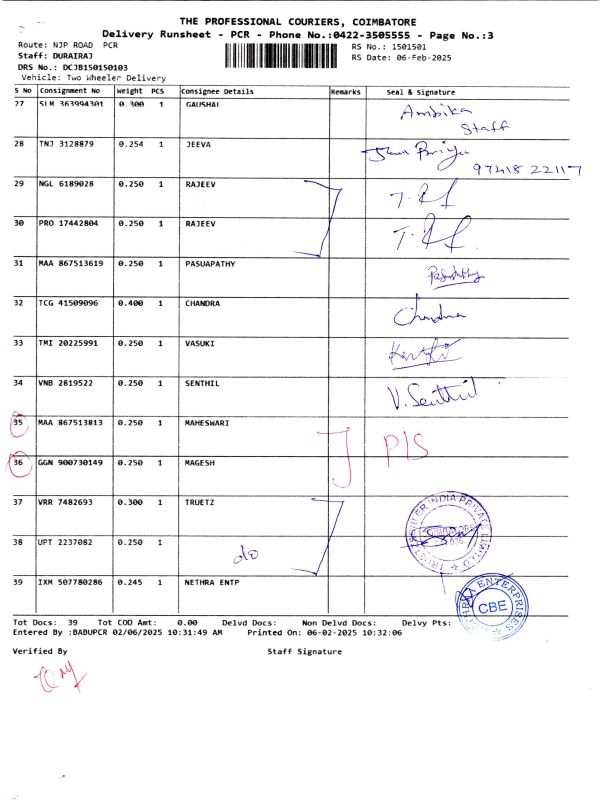 THE PROFESSIONAL COURIERS, COIMBATORE
Delivery Runsheet - PCR - Phone No.:0422-3505555 - Page No.:3
Route: NJP ROAD PCR
RS No.: 1501501
Staff: DURAIRAJ
RS Date: 06-Feb-2025
DRS No.: DCJB150150103
Vehicle: Two Wheeler Delivery
S No Consignment No Weight PCS Consignee Details Remarks Seal & Signature
27 SLM 363994301 0.300 1 GAUSHAL Ambika
Staff
28 TNJ 3128879 0.254 1 JEEVA Priya
97418 22117
29 NGL 6189028 0.250 1 RAJEEV
30 PRO 17442804 0.250 1 RAJEEV
31 MAA 867513619 0.250 1 PASUAPATHY Pasupathy
32 TCG 41509096 0.400 1 CHANDRA Chandra
33 TMI 20225991 0.250 1 VASUKI
34 VNB 2819522 0.250 1 SENTHIL V. Senthil
35 MAA 867513813 0.250 1 MAHESWARI
36 GGN 900730149 0.250 1 MAGESH PLS
37 VRR 7482693 0.300 1 TRUETZ
38 UPT 2237082 0.250 1 do
39 IXM 507780286 0.245 1 NETHRA ENTP
CBE
ENTERPRISES
Tot Docs: 39 Tot COD Amt: 0.00 Delvd Docs: Non Delvd Docs: Delvy Pts:
Entered By :BABUPCR 02/06/2025 10:31:49 AM Printed On: 06-02-2025 10:32:06
Verified By Staff Signature